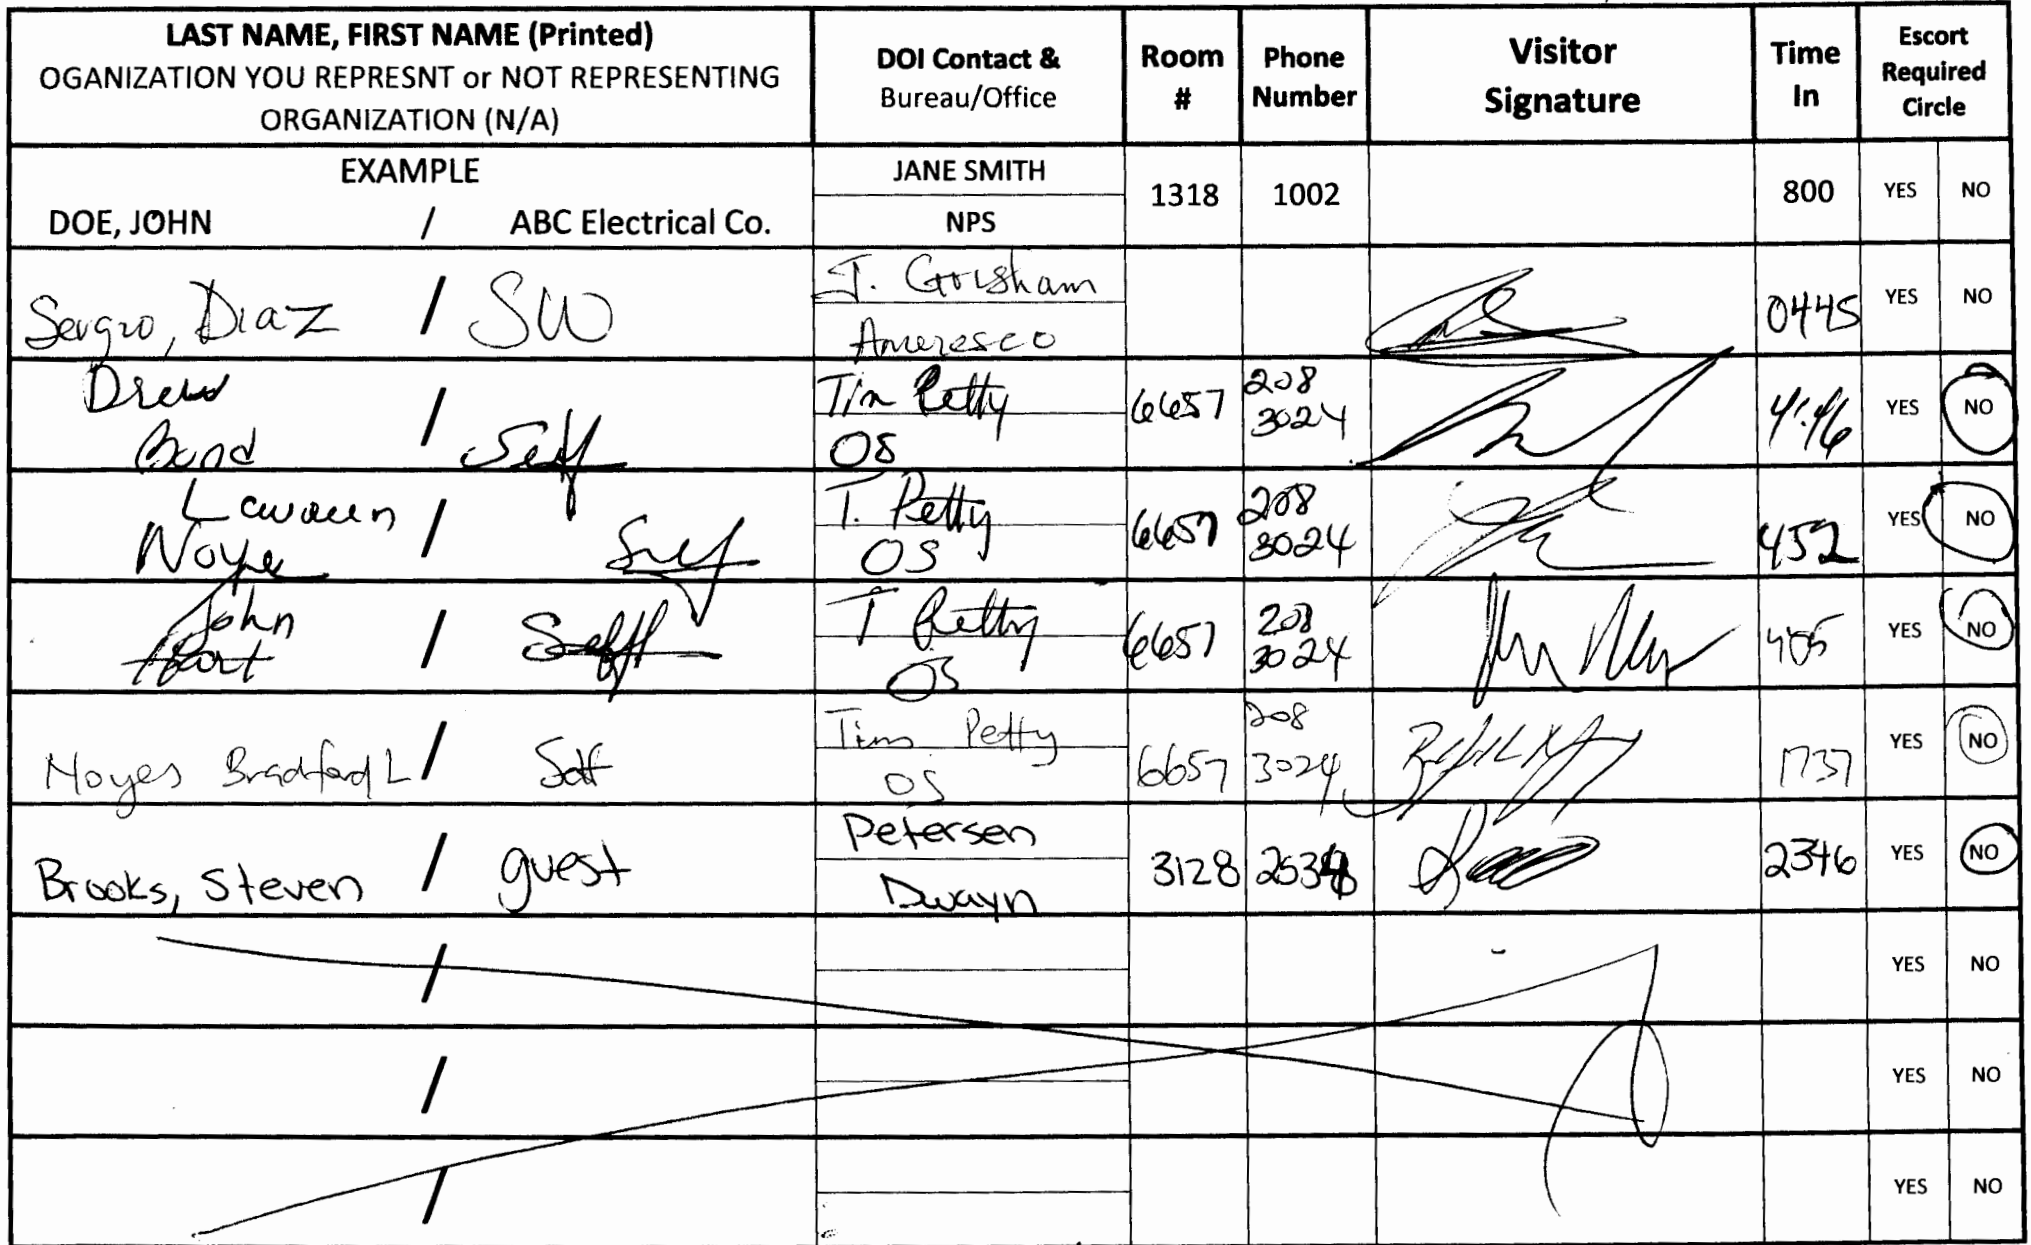 LAST NAME, FIRST NAME (Printed)
OGANIZATION YOU REPRESNT or NOT REPRESENTING
ORGANIZATION (N/A)
DOI Contact &
Bureau/Office
Room
#
Phone
Number
Visitor
Signature
Time
In
Escort
Required
Circle
EXAMPLE
DOE, JOHN / ABC Electrical Co.
JANE SMITH
NPS
1318 1002 800 YES NO
Sergio, Diaz / SW
J. Grisham
Ameresco
0445 YES NO
Drew
Bond / Self
Tim Petty
OS
6657
208
3024
4:46 YES NO
Noye / Self
T. Petty
OS
6657
208
3024
452 YES NO
John / Self
T Petty
OS
6657
208
3024
YES NO
Noyes Bradford L / Self
Tim Petty
OS
6657
208
3024
1737 YES NO
Brooks, Steven / guest
Petersen
Dwayn
3128 2346 YES NO
/ YES NO
/ YES NO
/ YES NO